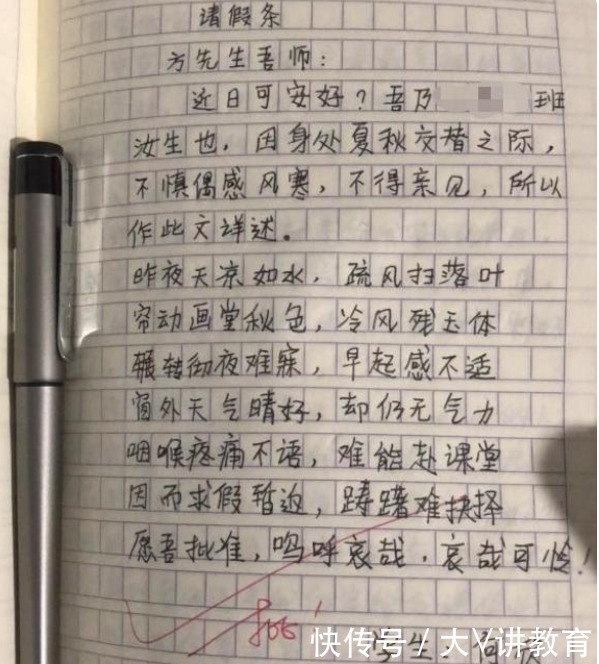 请假条
方先生吾师：
近日可安好？吾乃 班
汝生也，因身处夏秋交替之际，
不慎偶感风寒，不得亲见，所以
作此文详述。
昨夜天凉如水，疏风扫落叶
帘动画堂秋色，冷风残玉体
辗转彻夜难寐，早起感不适
窗外天气晴好，却仍无气力
咽喉疼痛不语，难能赴课堂
因而求假暂返，踌躇难抉择
愿吾批准，呜呼哀哉，哀哉可怜！
学生
快传号/大V讲教育